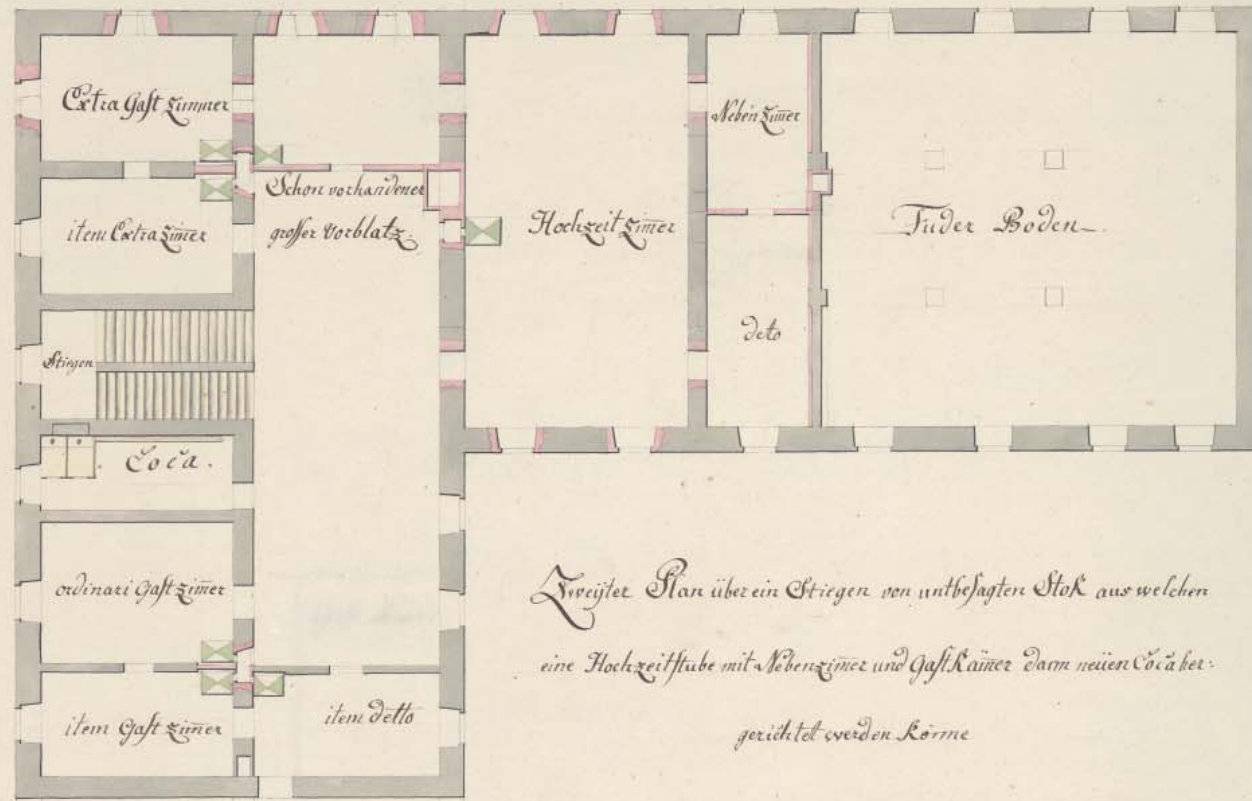 Extra Gast Zimmer
item Extra Zim̅er
Schon vorhandener
grosser Vorblatz.
Stiegen
Coca.
ordinari Gast Zim̅er
item Gast Zim̅er
item detto
Hochzeit Zim̅er
Neben Zim̅er
deto
Fuder Boden.
Zweÿter Plan über ein Stiegen von untbesagten Stok aus welchen
eine Hochzeitstube mit Nebenzim̅er und Gast Kam̅er dann neüen Coca her:
gerichtet werden könne